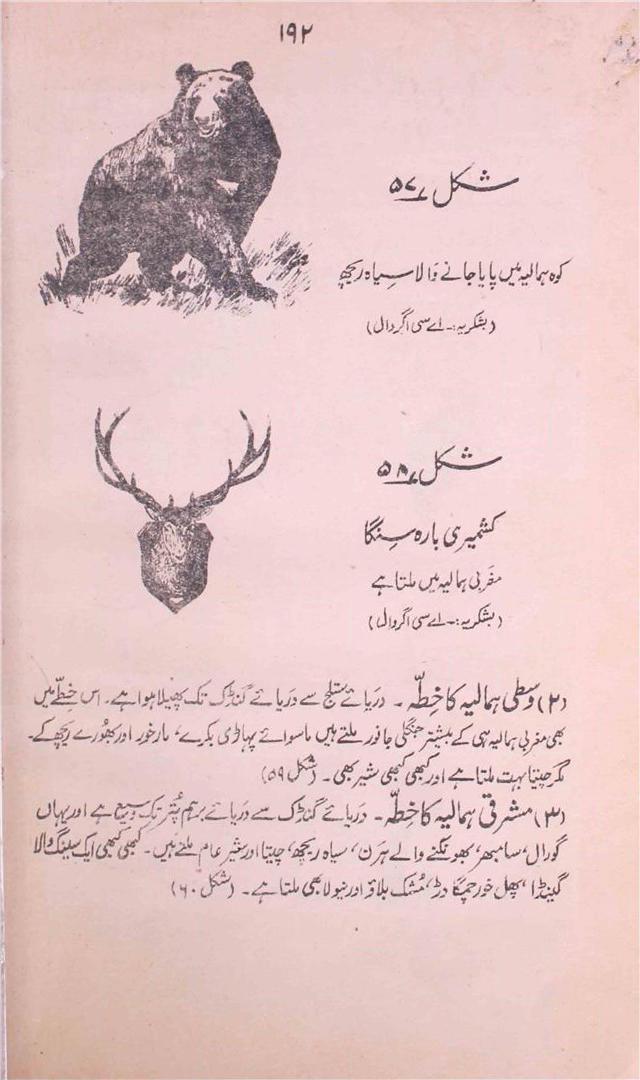 ۱۹۲
شکل ۵۷
کوہ ہمالیہ میں پایا جانے والا سیاہ ریچھ
(بشکریہ:۔ اے سی اگروال)
شکل ۵۸
کشمیری بارہ سنگا
مغربی ہمالیہ میں ملتا ہے
(بشکریہ:۔ اے سی اگروال)
(۲) وسطی ہمالیہ کا خطّہ ۔ دریائے ستلج سے دریائے گنڈک تک پھیلا ہوا ہے۔ اس خطّے میں
بھی مغربی ہمالیہ ہی کے بیشتر جنگلی جانور ملتے ہیں ماسوائے پہاڑی بکرے، مارخور اور بھورے ریچھ کے۔
مگر چیتا بہت ملتا ہے اور کبھی کبھی شیر بھی ۔ (شکل ۵۹)
(۳) مشرقی ہمالیہ کا خطّہ ۔ دریائے گنڈک سے دریائے برہم پُتر تک وسیع ہے اور یہاں
گورال، سامبھر، بھونکنے والے ہرن، سیاہ ریچھ، چیتا اور شیر عام ملتے ہیں۔ کبھی کبھی ایک سینگ والا
گینڈا، پھل خور چمگادڑ، مُشک بلاؤ اور نیولا بھی ملتا ہے۔ (شکل ۶۰)